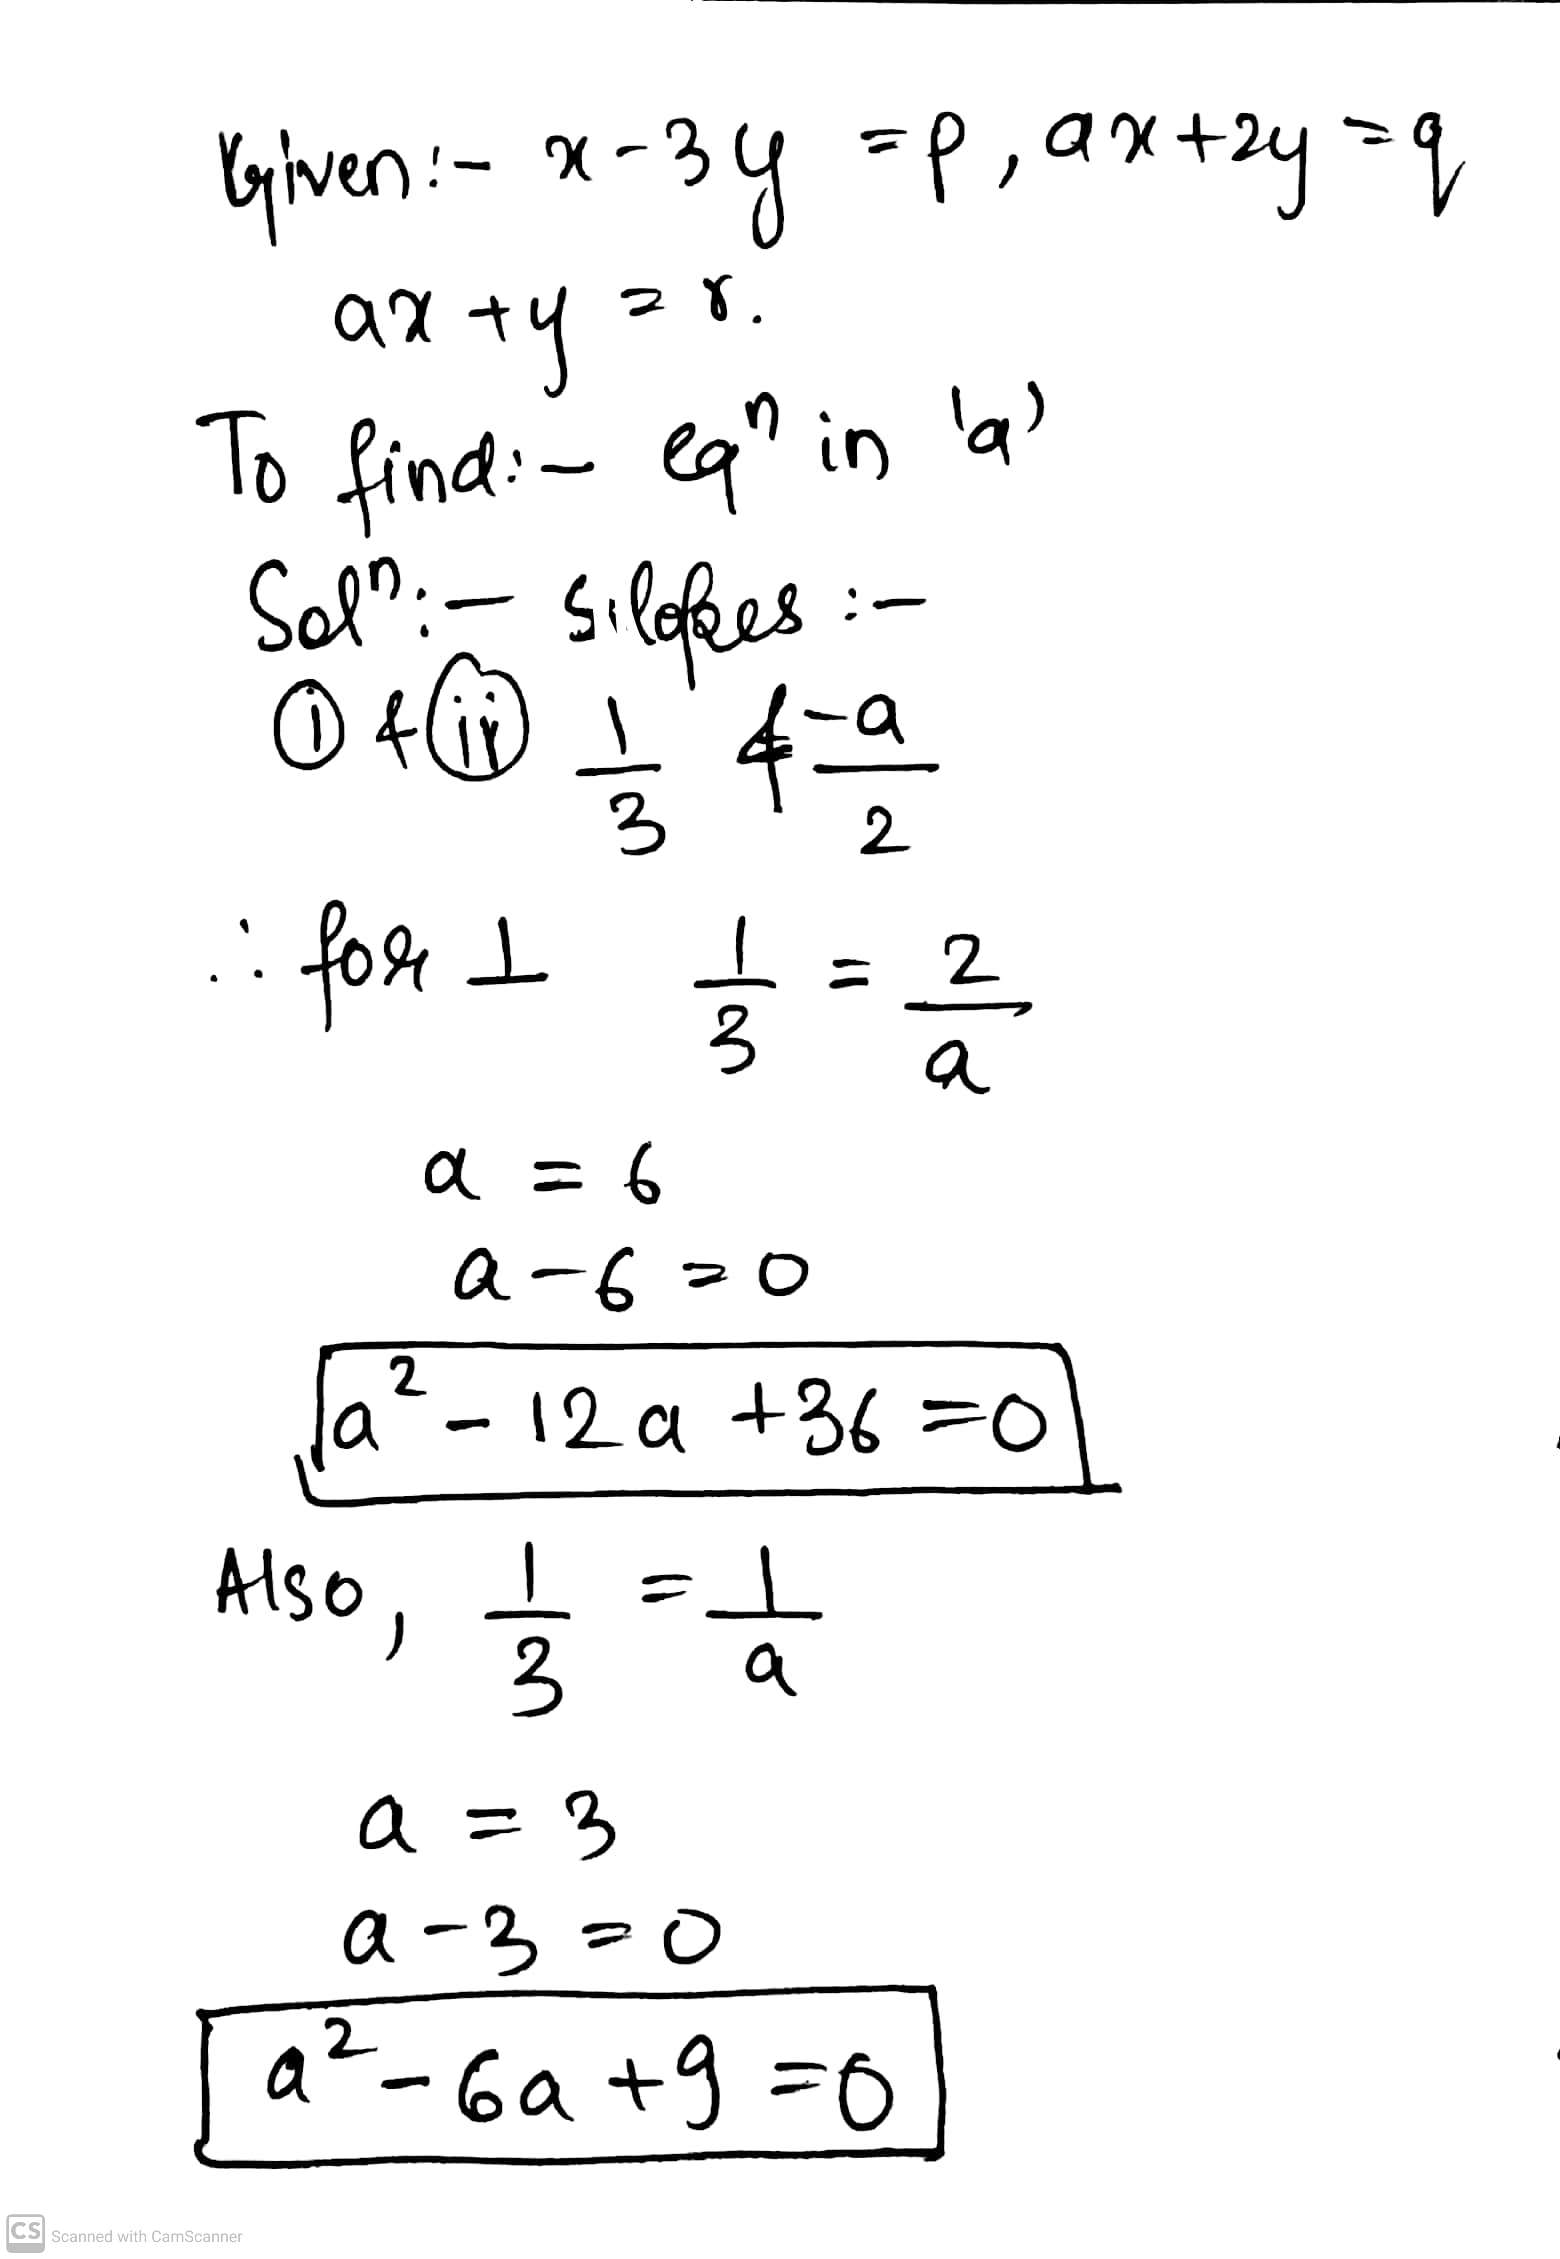 Given:- x - 3y = p, ax + 2y = q
ax + y = r.
To find:- eqⁿ in 'a'
Solⁿ:- slopes :-
(i) & (ii) 1/3 & -a/2
∴ for ⊥ 1/3 = 2/a
a = 6
a - 6 = 0
a² - 12a + 36 = 0
Also, 1/3 = 1/a
a = 3
a - 3 = 0
a² - 6a + 9 = 0
CS Scanned with CamScanner